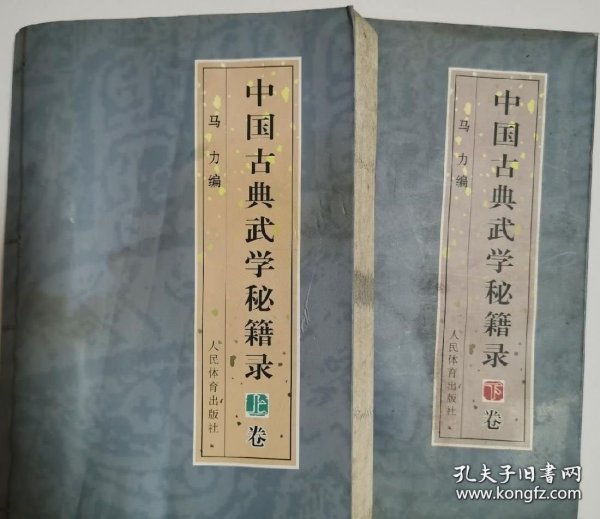 中国古典武学秘籍录 上卷
马力编
人民体育出版社
中国古典武学秘籍录 下卷
马力编
人民体育出版社
孔夫子旧书网
www.kongfz.com